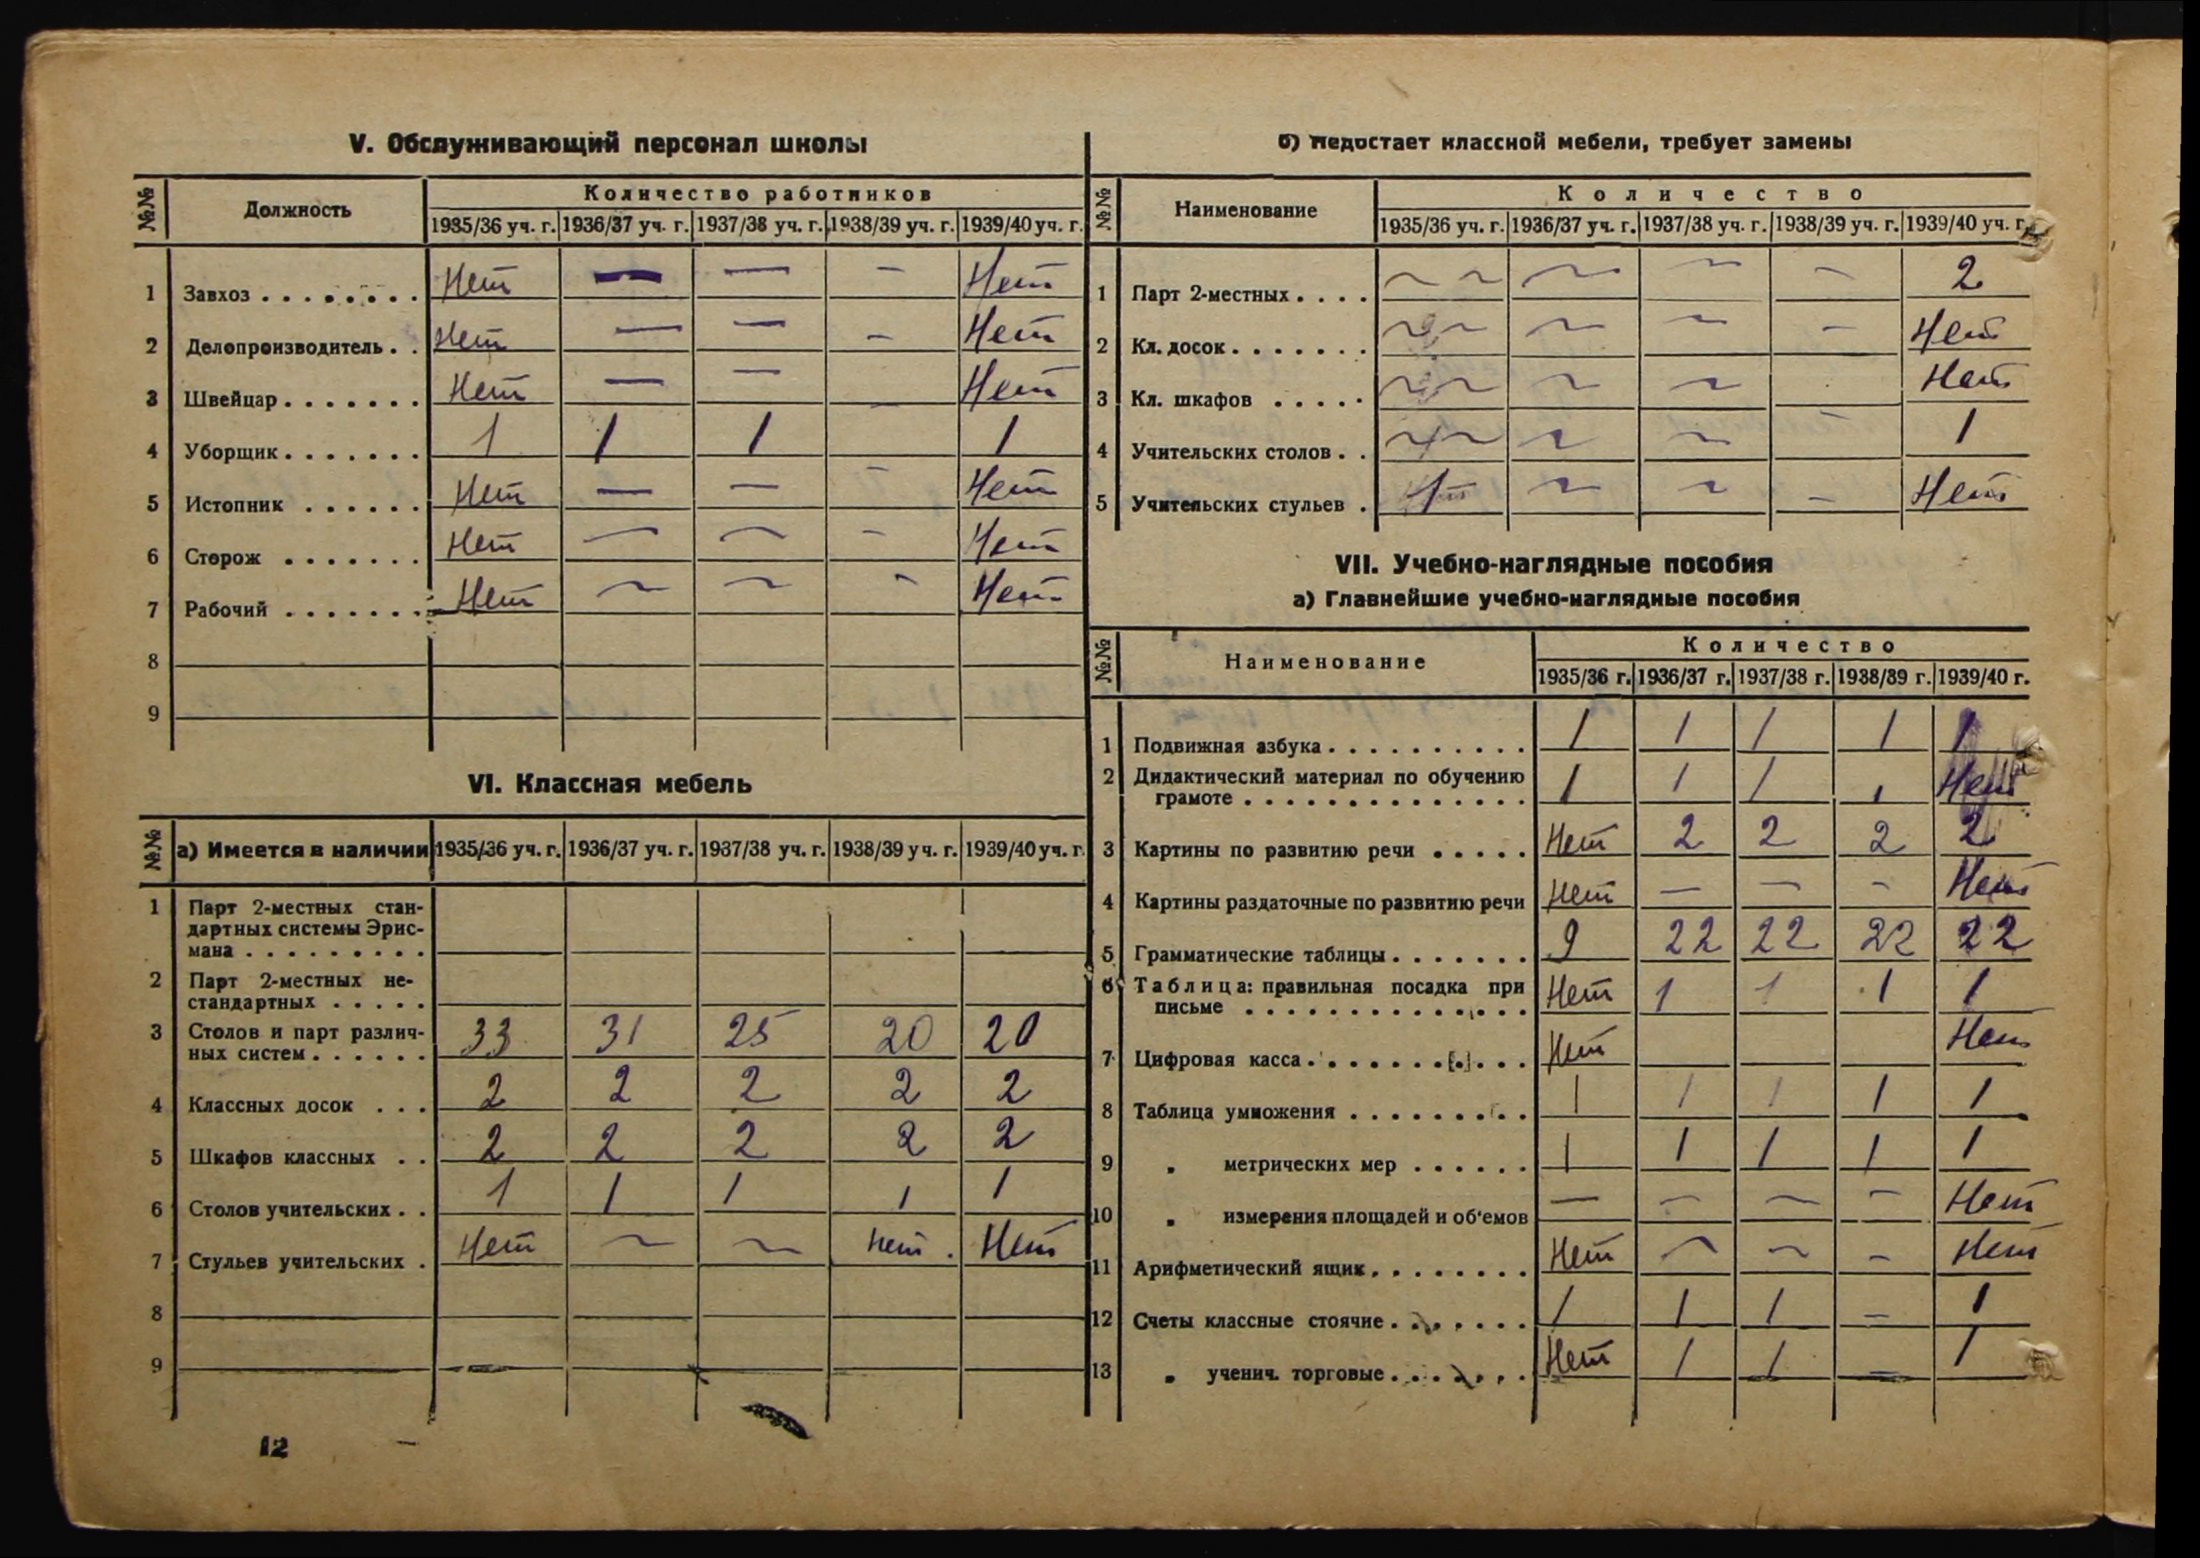 V. Обслуживающий персонал школы
№№ Должность Количество работников
1935/36 уч. г. 1936/37 уч. г. 1937/38 уч. г. 1938/39 уч. г. 1939/40 уч. г.
1 Завхоз . . . . . . . . Нет — — — Нет
2 Делопроизводитель . . Нет — — — Нет
3 Швейцар . . . . . . . Нет — — — Нет
4 Уборщик . . . . . . . 1 1 1 1
5 Истопник . . . . . . Нет — — — Нет
6 Сторож . . . . . . . Нет — — — Нет
7 Рабочий . . . . . . . Нет — — — Нет
8
9
VI. Классная мебель
№№ а) Имеется в наличии 1935/36 уч. г. 1936/37 уч. г. 1937/38 уч. г. 1938/39 уч. г. 1939/40 уч. г.
1 Парт 2-местных стан-
дартных системы Эрис-
мана . . . . . . . . .
2 Парт 2-местных не-
стандартных . . . . .
3 Столов и парт различ-
ных систем . . . . . . 33 31 25 20 20
4 Классных досок . . . 2 2 2 2 2
5 Шкафов классных . . 2 2 2 2 2
6 Столов учительских . . 1 1 1 1 1
7 Стульев учительских . Нет — — нет. Нет
8
9
12
б) Недостает классной мебели, требует замены
№№ Наименование Количество
1935/36 уч. г. 1936/37 уч. г. 1937/38 уч. г. 1938/39 уч. г. 1939/40 уч. г.
1 Парт 2-местных . . . . — — — — — 2
2 Кл. досок . . . . . . . — — — — — Нет
3 Кл. шкафов . . . . . — — — — Нет
4 Учительских столов . . — — — — 1
5 Учительских стульев . 1 — — — Нет
VII. Учебно-наглядные пособия
а) Главнейшие учебно-наглядные пособия
№№ Наименование Количество
1935/36 г. 1936/37 г. 1937/38 г. 1938/39 г. 1939/40 г.
1 Подвижная азбука . . . . . . . . . . 1 1 1 1 1
2 Дидактический материал по обучению
грамоте . . . . . . . . . . . . . . 1 1 1 1 Нет
3 Картины по развитию речи . . . . . Нет 2 2 2 2
4 Картины раздаточные по развитию речи Нет — — — Нет
5 Грамматические таблицы . . . . . . . 9 22 22 22 22
6 Таблица: правильная посадка при
письме . . . . . . . . . . . . . . Нет 1 1 1 1
7 Цифровая касса . . . . . . . . . . . Нет Нет
8 Таблица умножения . . . . . . . . . 1 1 1 1 1
9 „ метрических мер . . . . . . 1 1 1 1 1
10 „ измерения площадей и об'емов — — — — Нет
11 Арифметический ящик . . . . . . . . Нет — — — Нет
12 Счеты классные стоячие . . . . . . . 1 1 1 — 1
13 „ ученич. торговые . . . . . . . Нет 1 1 — 1